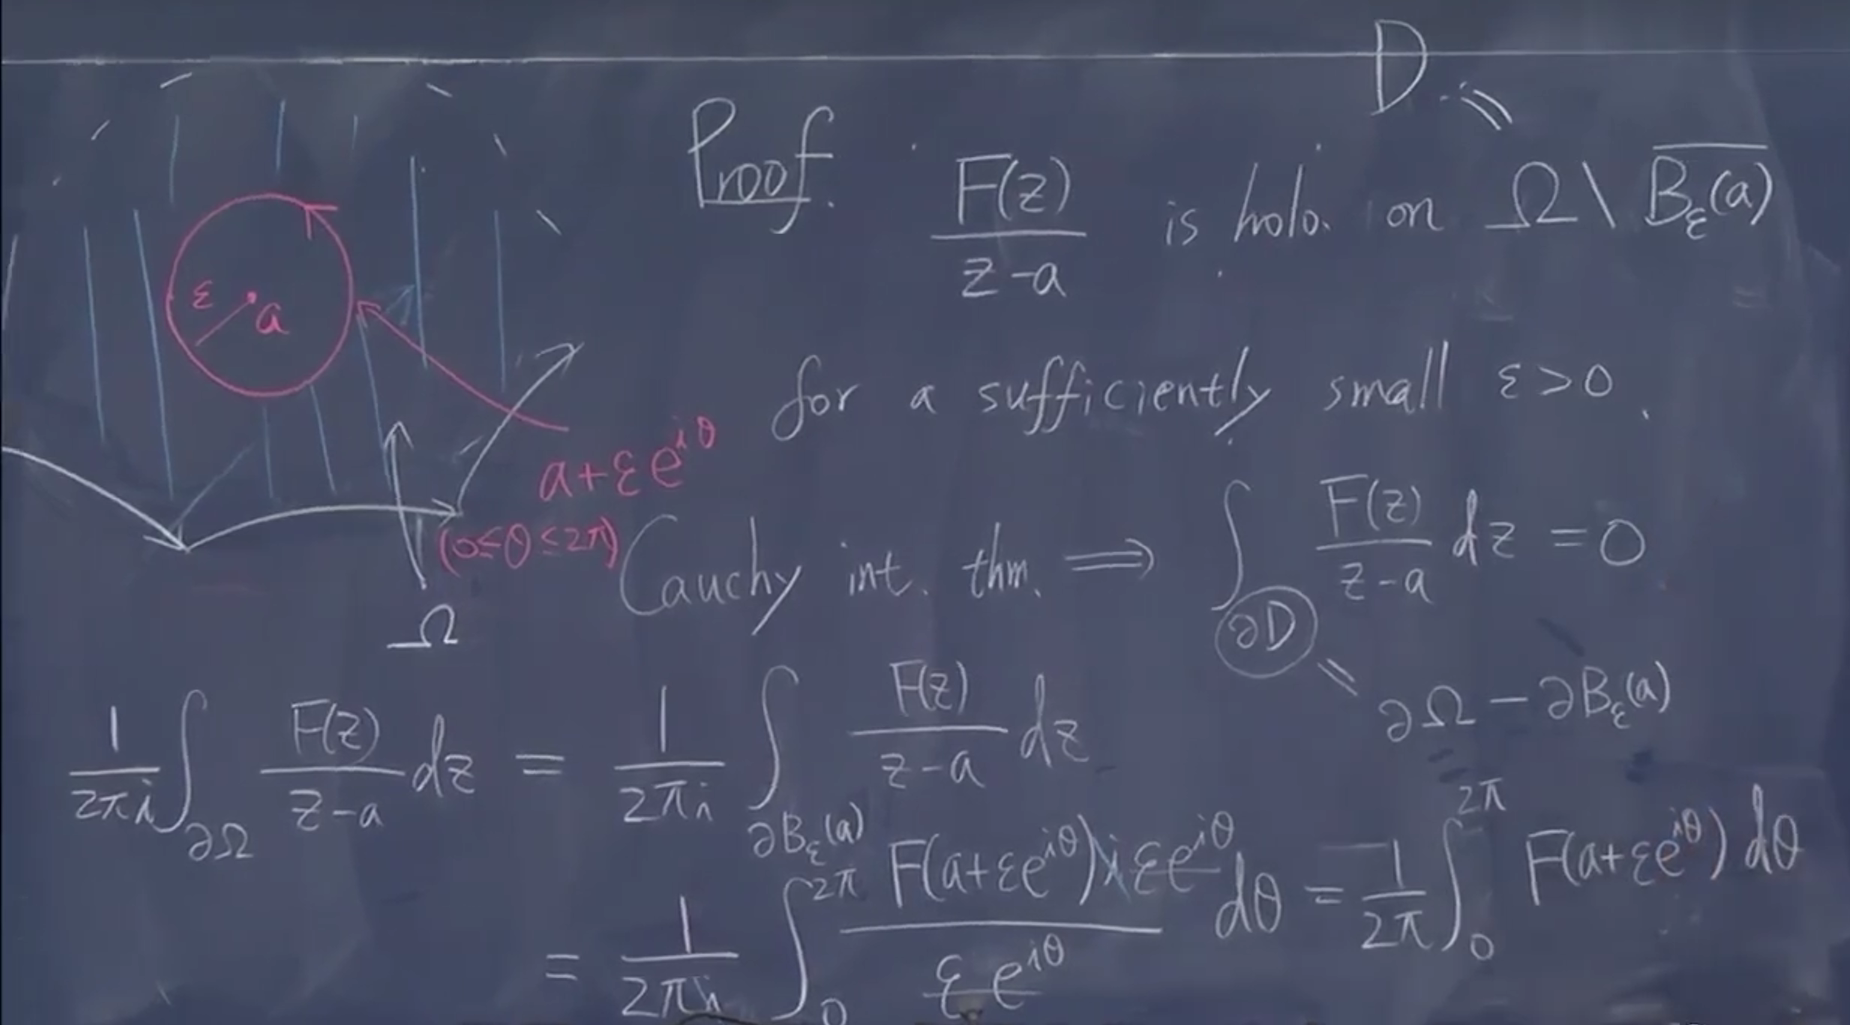 D =
Proof. F(z)/(z-a) is holo. on Ω \ \overline{B_ε(a)}
ε a
for a sufficiently small ε>0.
a+εe^{iθ}
(0≤θ≤2π)
Cauchy int. thm. ⟹ ∫_{∂D} F(z)/(z-a) dz = 0
Ω
= ∂Ω - ∂B_ε(a)
1/(2πi) ∫_{∂Ω} F(z)/(z-a) dz = 1/(2πi) ∫_{∂B_ε(a)} F(z)/(z-a) dz
= 1/(2πi) ∫_0^{2π} F(a+εe^{iθ}) iεe^{iθ}/(εe^{iθ}) dθ = 1/(2π) ∫_0^{2π} F(a+εe^{iθ}) dθ